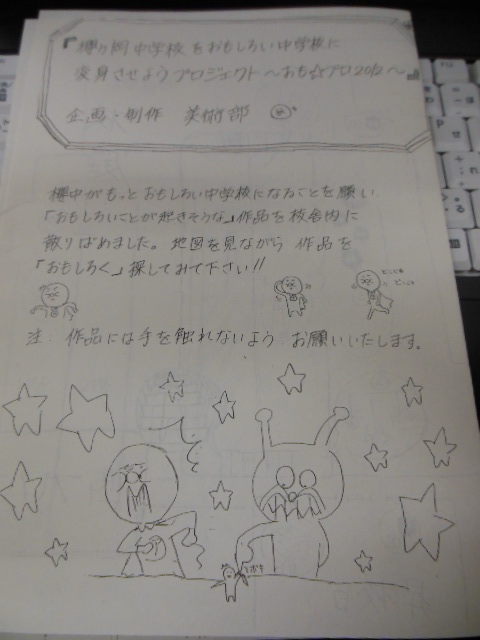 『欅ヶ岡中学校をおもしろい中学校に
変身させようプロジェクト〜おも☆プロ2012〜』
企画・制作 美術部
欅中がもっとおもしろい中学校になることを願い
「おもしろいことが起きそうな」作品を校舎内に
散りばめました。地図を見ながら 作品を
「おもしろく」探してみて下さい!!
注:作品には手を触れないよう お願いいたします。